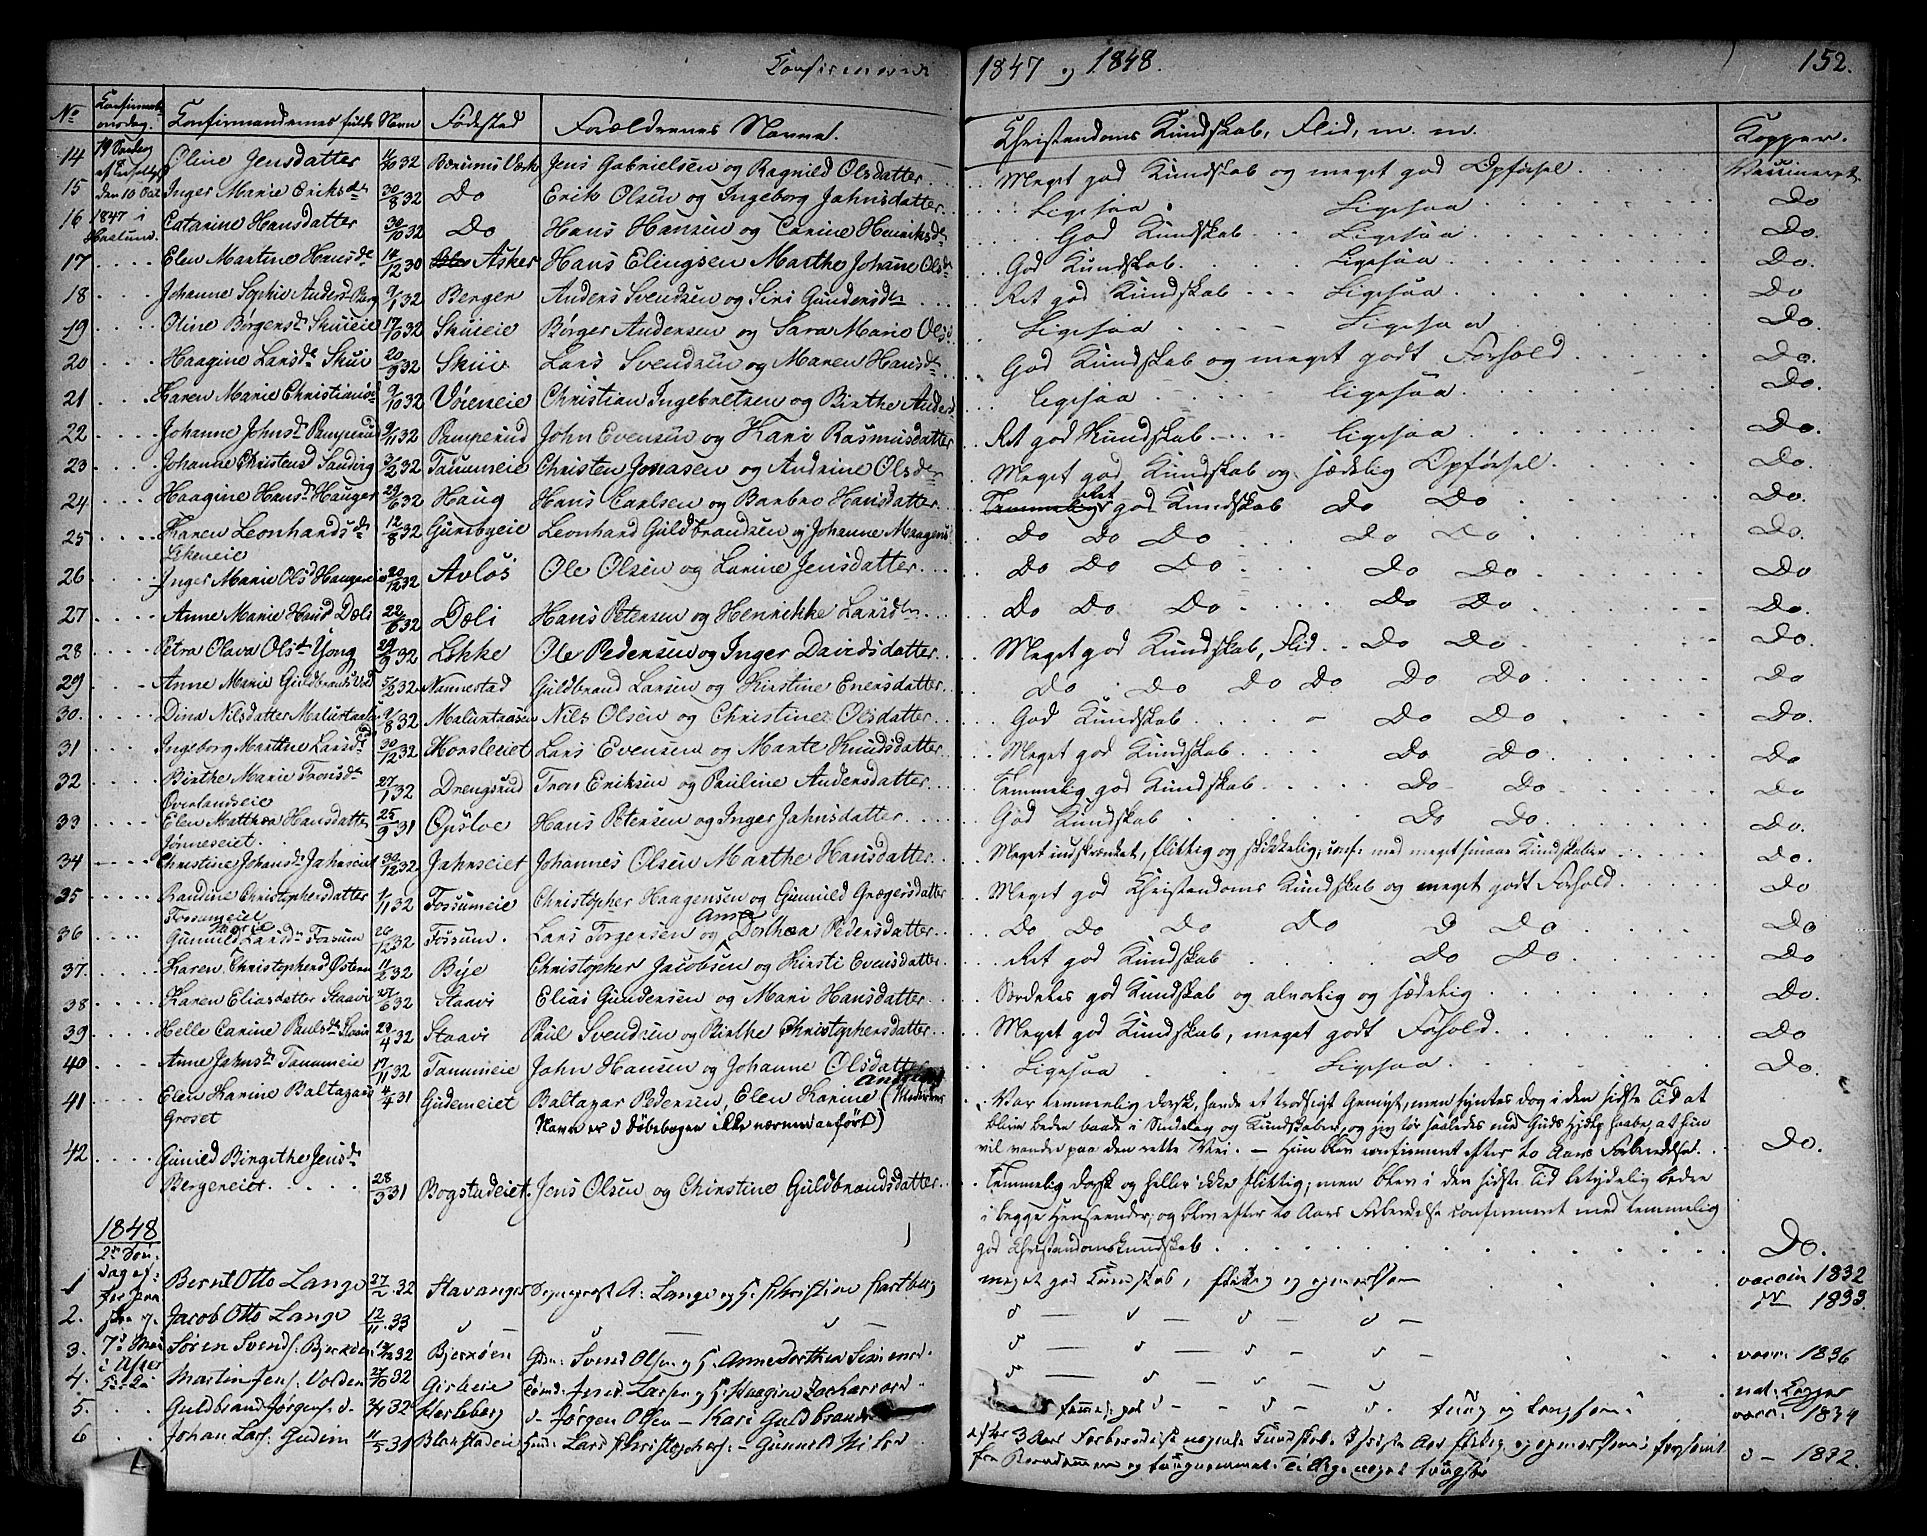 Confirmerede 1847 og 1848. 152.
No Confirmationsdag. Confirmandernes fulde Navn Födested Forældrenes Navne. Christendoms Kundskab, Flid, m. m. Kopper.
14 Oline Jensdatter 32 Bærums Værk Jens Gabrielsen og Ragnild Olsdatter Meget god Kundskab og meget god Opførsel Vaccineret
15 den 10 Oct Inger Marie Eriksdr 30/8 32 Do Erik Olsen og Ingeborg Jahnsdatter Ligesaa Ligesaa Do
16 1847 i Haslund. Catarine Hansdatter 30/10 32 Do Hans Hansen og Carine Henriksdr God Kundskab Ligesaa Do.
17 Elen Martine Hansdr 14/12 30 Asker Hans Elingsen Marthe Johanne Olsdr God Kundskab Ligesaa Do.
18 Johanne Sophie Andersd Berg 9/1 32 Berger Anders Svendsen og Siri Gundersdr Ret god Kundskab Ligesaa Do
19 Oline Børgensdr Skuieie 17/10 32 Skuieie Børger Andersen og Sara Marie Olsd Ligesaa Ligesaa Do.
20 Haagine Larsdr Skui 20/9 32 Skui Lars Svendsen og Maren Hansdr God Kundskab og meget godt Forhold Do.
21 Karen Marie Christiansdr 9/10 32 Vöieneie Christian Ingebretsen og Birthe Andersd ligesaa ligesaa Do.
22 Johanne Johnsdr Pamperud 9/11 32 Pamperud John Evensen og Kari Rasmusdatter Ret god Kundskab ligesaa Do.
23 Johanne Christensd Sandvig 3/2 32 Tanumeie Christen Jonasen og Andrine Olsdr Meget god Kundskab og sædelig Opførsel Do.
24 Haagine Hansdr Hauger 29/6 32 Haug Hans Carlsen og Barbro Hansdatter Temmelig ret god Kundskab Do Do Do.
25 Karen Leonhardsdr 12/8 32 Gursbyeie Leonhard Guldbrandsen og Johanne Maagens Do Do Do Do Do Do.
Lekeneie
26 Inger Marie Olsd Haugereie 20/12 32 Avløs Ole Olsen og Larine Jensdatter Do Do Do Do Do Do
27 Anne Marie Hansd Dæli 22/6 32 Dæli Hans Petersen og Henrikke Larsdr Do Do Do Do Do Do.
28 Petra Olava Olsdr Yong 29/9 32 Løkke Ole Pedersen og Inger Davidsdatter Meget god Kundskab, Flid Do Do Do
29 Anne Marie Guldbrandsd 5/2 32 Nannestad Guldbrand Larsen og Kirstine Enersdatter Do Do Do Do Do Do Do
30. Dina Nilsdatter 9/8 32 Nils Olsen og Christine Olsdatter God Kundskab Do Do Do
31 Ingeborg Marthe Larsdr 30/12 32 Horsleiet Lars Evensen og Marte Knudsdatter Meget god Kundskab Do Do Do
32 Birthe Marie Tronsdr 27/1 32 Drengsrud Tron Eriksen og Pauline Andersdatter Temmelig god Kundskab Do Do Do
Øverlandseie
33 Elen Matthea Hansdatter 25/9 31 Opsloe Hans Petersen og Inger Jahnsdatter God Kundskab Do Do Do.
Jønneseiet.
34 Christine Johansdr Jahrseiet 30/12 32 Jahrseiet Johannes Olsen Marthe Hansdatter Meget indskrænket, flittig og skikkelig; conf. med meget smaae Kundskaber Do.
35 Randine Christophersdatter 1/11 32 Fossumeie Christopher Haagensen og Gunnild Grægersdatter Meget god Christendoms Kundskab og meget godt Forhold Do
Fossumeiet
36 Gunnild Marie Larsdr Fossum 26/12 32 Fossum. Lars Torgersen og Anne Dorthea Pedersdatter Do Do Do Do D Do Do
37. Karen Christophersd Østern 11/2 32 Bye Christopher Jacobsen og Kirsti Evensdatter Ret god Kundskab Do Do Do
38 Karen Eliasdatter Staavi 27/6 32 Staavi Elias Gundersen og Mari Hansdatter Særdeles god Kundskab og alvorlig og sædelig Do.
39 Helle Carine Paulsdr Staavi 29/4 32 Staavi Paul Svendsen og Birthe Christophersdatter Meget god Kundskab, meget godt Forhold Do
40 Anne Jahnsdr Tanumeie 17/11 32 Tanumeie John Hansen og Johanne Olsdatter Ligesaa Ligesaa Do.
41 Elen Karine Baltazarsd 4/4 31 Gudemeiet Baltazar Pedersen, Elen Karine (Moderens
Groset Navn er i Døbebogen ikke nærmere anført)
Var temmelig dorsk, havde et trodsigt Gemyt, men syntes dog i den sidste Tid at
blive beder baade i Sindelag og Kundskaber, og jeg tør saaledes med Guds Hjelp haabe, at hun
vil vandre paa den rette Vei. – Hun blev confirmert efter to Aars Forberedelse. Do.
42 Gunild Birgithe Jensdr
Bergeneiet. 28/3 31 Bogstadeiet. Jens Olsen og Christine Guldbrandsdatter
Temmelig dorsk og heller ikke flittig; men blev i den sidste Tid betydelig bedre
i begge Henseender, og blev efter to Aars Forberedelse confirmert med temmelig
god Christendomskundskab Do.
1848
2n Søndag efter Paaske 7d Mai i Asker Kirke
1 Bernt Otto Lange 27/2 32 Stavanger A. Lange og H. Christine meget god Kundskab, flittig og opmerksom vaccin 1832
2. Jacob Otto Lange 12/11 33 1833.
3. Søren Svends. Bjerkøen 32 Bjerkøen Gdm: Svend Olsen og H. Anne Dorthea Simensd. vacc: 1836
4. Martin Jens. Volden 27/10 32 Girleie Jens Larsen og H. Haagine Zachariasd nat: Kopper
5. Guldbrand Jørgens. 32 Horleberg Jørgen Olsen – Kari Guldbrandsd tem: god vacc: 1834
6 Johan Lars. Gudim 11/5 30 Blakstadeie Lars Christophers. – Gunnild Nilsd efter 3 Aars Forberedelse nogenl: Kundskab – 1832.